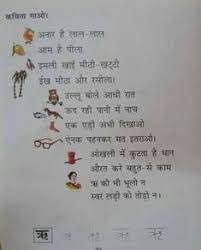 कविता गाओ।
अनार है लाल-लाल
आम है पीला
इमली खाई मीठी-खट्टी
ईख मीठा और रसीला।
उल्लू बोले आधी रात
ऊद रही पानी में नाच
एक एड़ी अभी दिखाओ
ऐनक पहनकर मत इतराओ।
ओखली में कुटता है धान
औरत करे बहुत-से काम
ऋ को भी भूलो न
स्वर लड़ी को तोड़ो न।
ऋ ऋ ऋ ऋ ऋ